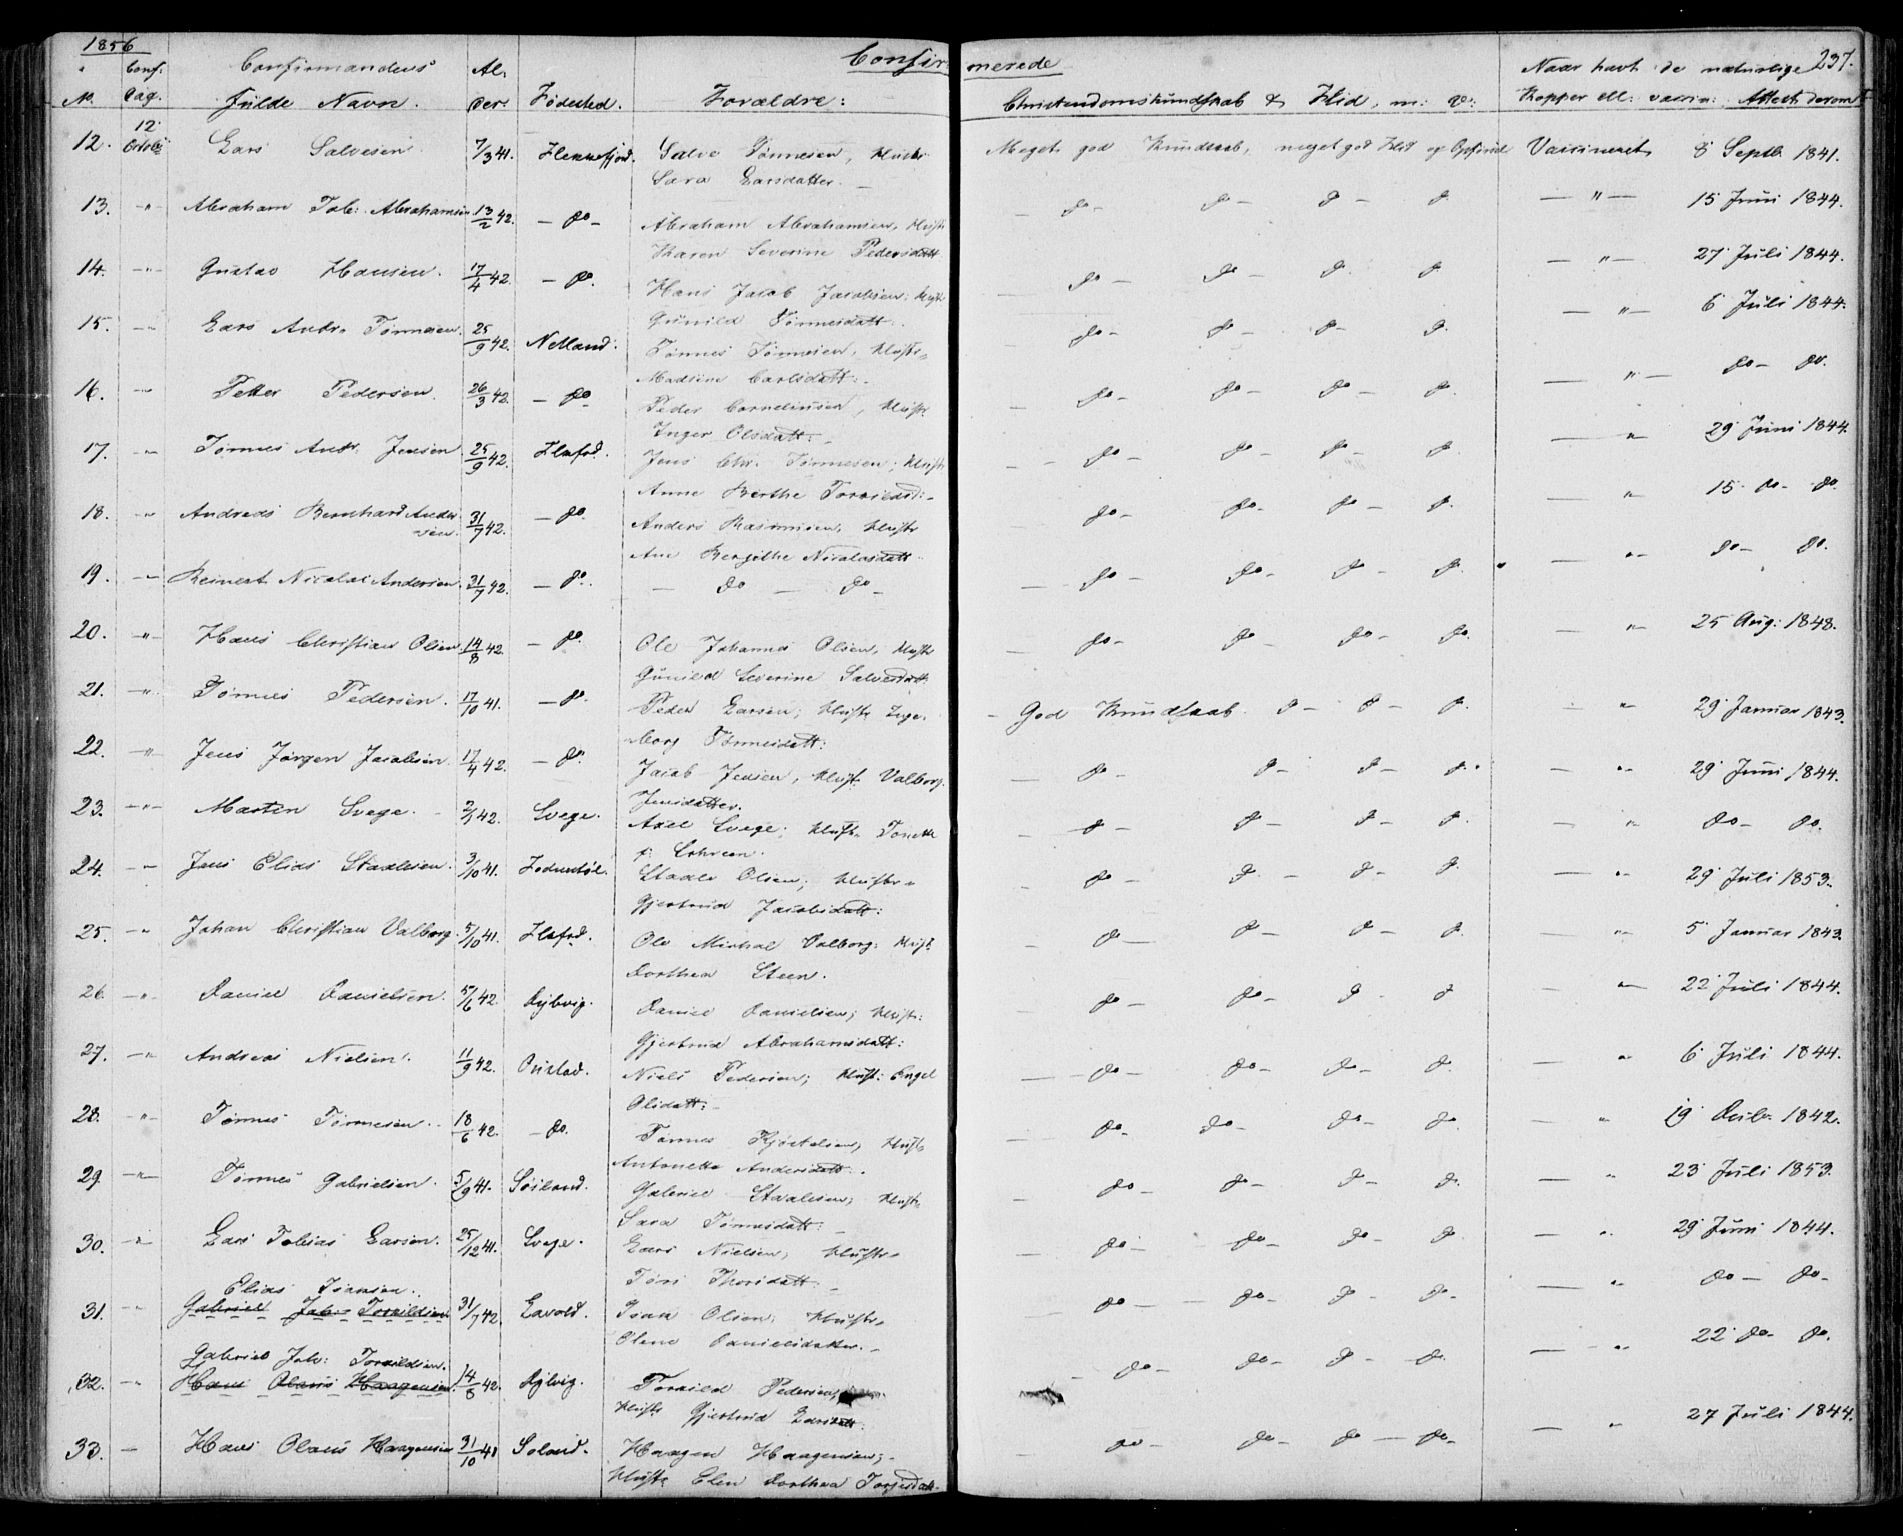 1856 Confirmerede 237.
No. Conf: Dag. Confirmandens fulde Navn. Alder Fødested. Forældre: Christendomskundskab & Flid, m: v: Naar havt de naturlige Kopper ell: vaccin: Attest derom
12. 12 October Lars Salvesen 7/3 41. Flekkefjord. Salve Tønnesen, Hustr: Meget god Kundskab, meget god Flid og Opførsel Vaccineret 8 Septb. 1841.
Sara Larsdatter. —
13. " Abraham Tob: Abrahamsen 13/2 42. — do — Abraham Abrahamsen, Hustr — do — do — do — do. — " — 15 Juni 1844.
Karen Severine Pedersdatt
14. " Gustav Hansen. 17/4 42. — do. Hans Jacob Jacobsen, Hustr — do — do — do. do. — " — 27 Juli 1844.
Gunild Tønnesdatt:
15. " Lars Andr. Tønnesen. 25/9 42. Netland. Tønnes Tønnesen, Hustr. — do — do — do — do. — " — 6 Juli 1844.
Madsine Carlsdatt:
16. " Petter Pedersen. 26/3 42. — do. Peder Corneliusen, Hustr — do — do — do — do. — " — do — do.
Inger Olsdatt:
17. " Tønnes Andr. Jensen 25/9 42. Flkfrd. Jens Chr. Tønnesen, Hustr — do — do — do — do. — " 29 Juni 1844.
Anne Berthe Torkildsd: —
18. " Andreas Bernhard Andersen. 31/7 42. — do. Anders Rasmusen, Hustr — do — do — do — do. — " 15 do — do.
Ane Bergithe Nicolaisdatt
19. " Reinert Nicolai Andersen. 31/7 42. — do. — do — do — — do — do — do — do. — " do — do.
20. " Hans Christian Olsen 14/8 42. — do. Ole Johannes Olsen, Hustr — do — do — do — do. — " 25 Aug: 1848.
Gunild Severine Salvesdatt
21. " Tønnes Pedersen. 17/10 41. — do. Peder Larsen; Hustr Inge- — God Kundskab. do — do — do. " 29 Januar 1843.
borg Tønnesdatt:
22. " Jens Jørgen Jacobsen. 17/4 42. — do. Jacob Jensen, Hustr Valborg — do — do — do — do. — " 29 Juni 1844.
Jensdatter.
23. " Marten Svege. 2/1 42. Svege. Axel Svege; Hustr Tonette — do — do — do — do. — " do — do.
24. " Jens Elias Staalesen. 3/10 41. Staale Olsen; Hustr. — do — do. do — do. — " 29 Juli 1853.
Gjertrud Jacobsdatt:
25. " Johan Christian Valborg. 5/10 41. Flkfrd. Ole Michal Valborg; Hust. — do — do — do — do. — " 5 Januar 1843.
Dorthea Steen.
26. " Daniel Danielsen. 5/6 42. Rylvig. Daniel Danielsen; Hustr: — do — do — do. do — " 22 Juli 1844.
Gjertrud Abrahamsdatt:
27. " Andreas Nielsen. 11/9 42. Oustad. Niels Pedersen; Hust: Engel — do — do — do — do. — " 6 Juli 1844.
Olsdatt:
28. " Tønnes Tønnesen. 18/6 42. — do. Tønnes Kjøstelsen, Hustr — do — do — do — do. " 19 Decbr. 1842.
Antonette Andersdatt:
29. " Tønnes Gabrielsen. 5/9 41. Søiland. Gabriel Staalesen; Hustr. — do — do — do — do. — " 23 Juli 1853.
Sara Tønnesdatt:
30. " Lars Tobias Larsen. 25/12 41. Svege. Lars Nielsen; Hustr. — do — do — do — do. — " 29 Juni 1844.
Elias Isaksen.
31. " Gabriel Jah: Torkildsen 31/7 42. Lavold. Isak Olsen; Hustr. — do — do — do — do. — " do — do —
Olene Danielsdatter. —
Gabriel Jah: Torkildsen.
32. " Hans Olaus Haagensen. 14/8 42. Rylvig. Torkild Pedersen, — do — do — do — do. — " 22 do — do.
Hustr Gjertrud Larsdatt.
33. — Hans Olaus Haagensen 31/10 41 Soland. Haagen Haagensen; — do — do — do — do. — " 27 Juli 1844.
Hustr Elen Dorthea Torjesdatt.